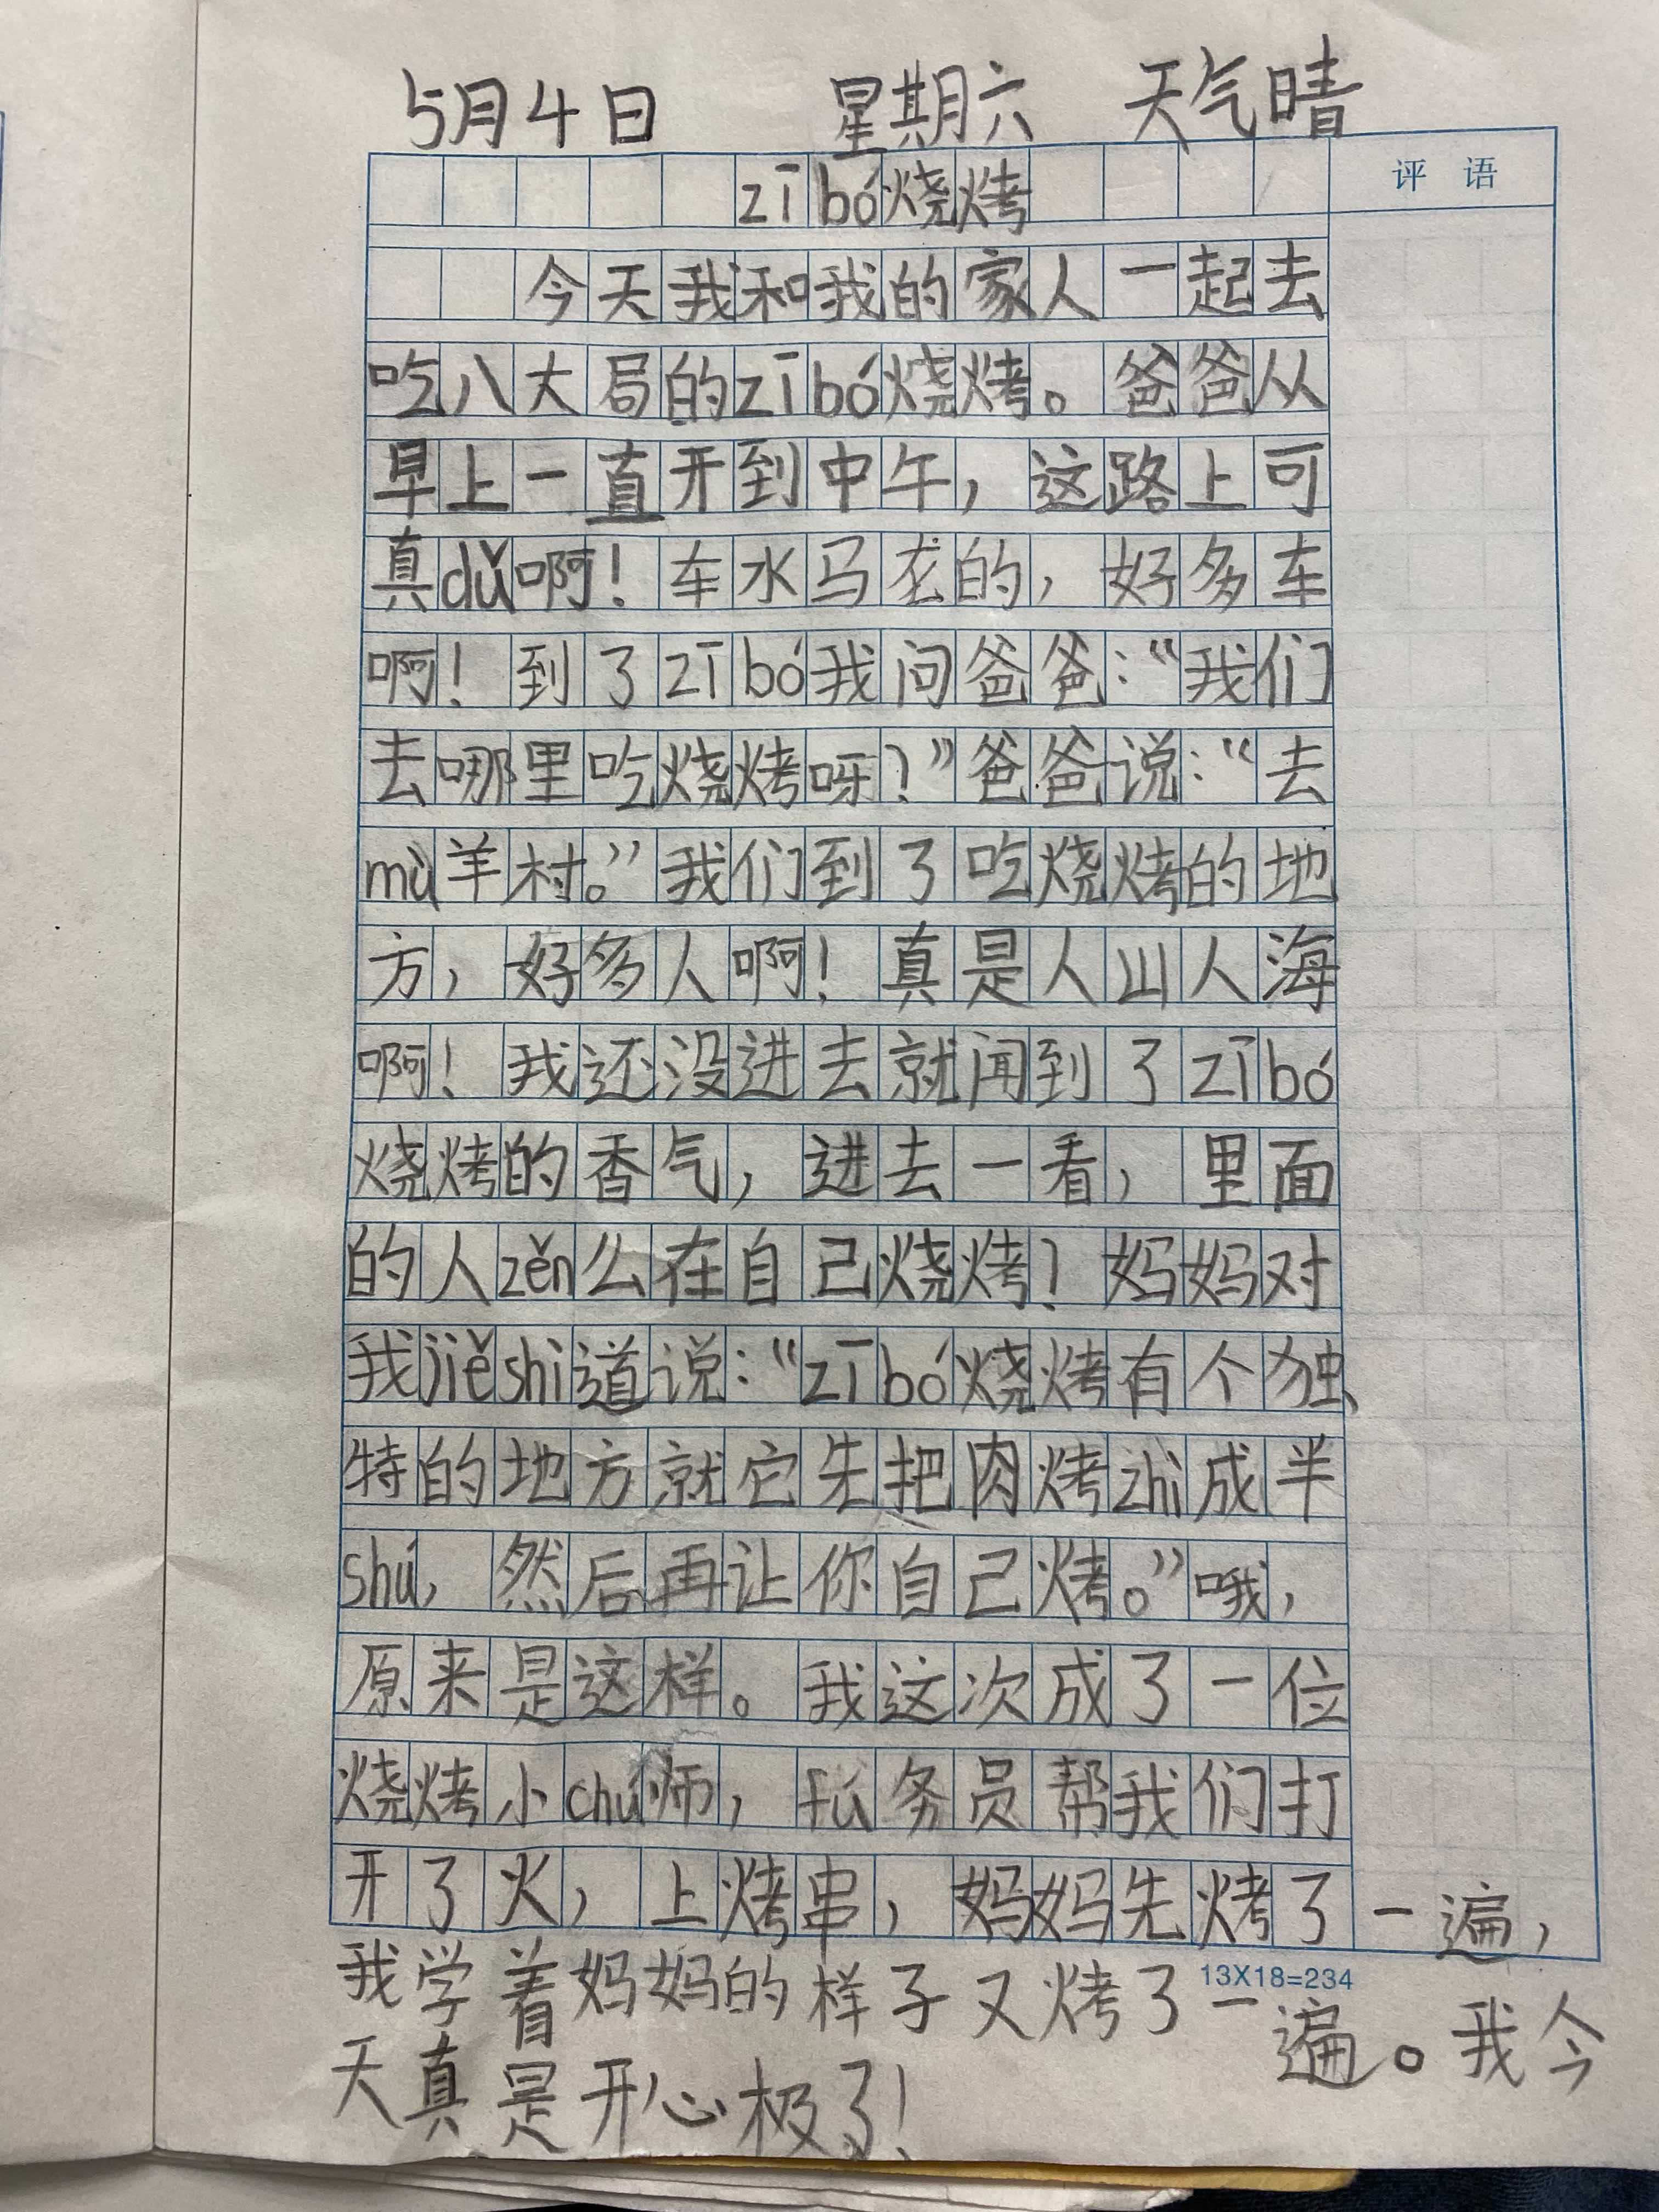 5月4日 星期六 天气晴
评语
zī bó烧烤
今天我和我的家人一起去
吃八大局的zī bó烧烤。爸爸从
早上一直开到中午，这路上可
真dǔ啊！车水马龙的，好多车
啊！到了zī bó我问爸爸：“我们
去哪里吃烧烤呀？”爸爸说：“去
mù羊村。”我们到了吃烧烤的地
方，好多人啊！真是人山人海
啊！我还没进去就闻到了zī bó
烧烤的香气，进去一看，里面
的人zěn么在自己烧烤？妈妈对
我jiě shi道说：“zī bó烧烤有个独
特的地方就它先把肉烤zhi成半
shú，然后再让你自己烤。”哦，
原来是这样。我这次成了一位
烧烤小chú师，fú务员帮我们打
开了火，上烤串，妈妈先烤了一遍，
我学着妈妈的样子又烤了一遍。我今
13X18=234
天真是开心极了！